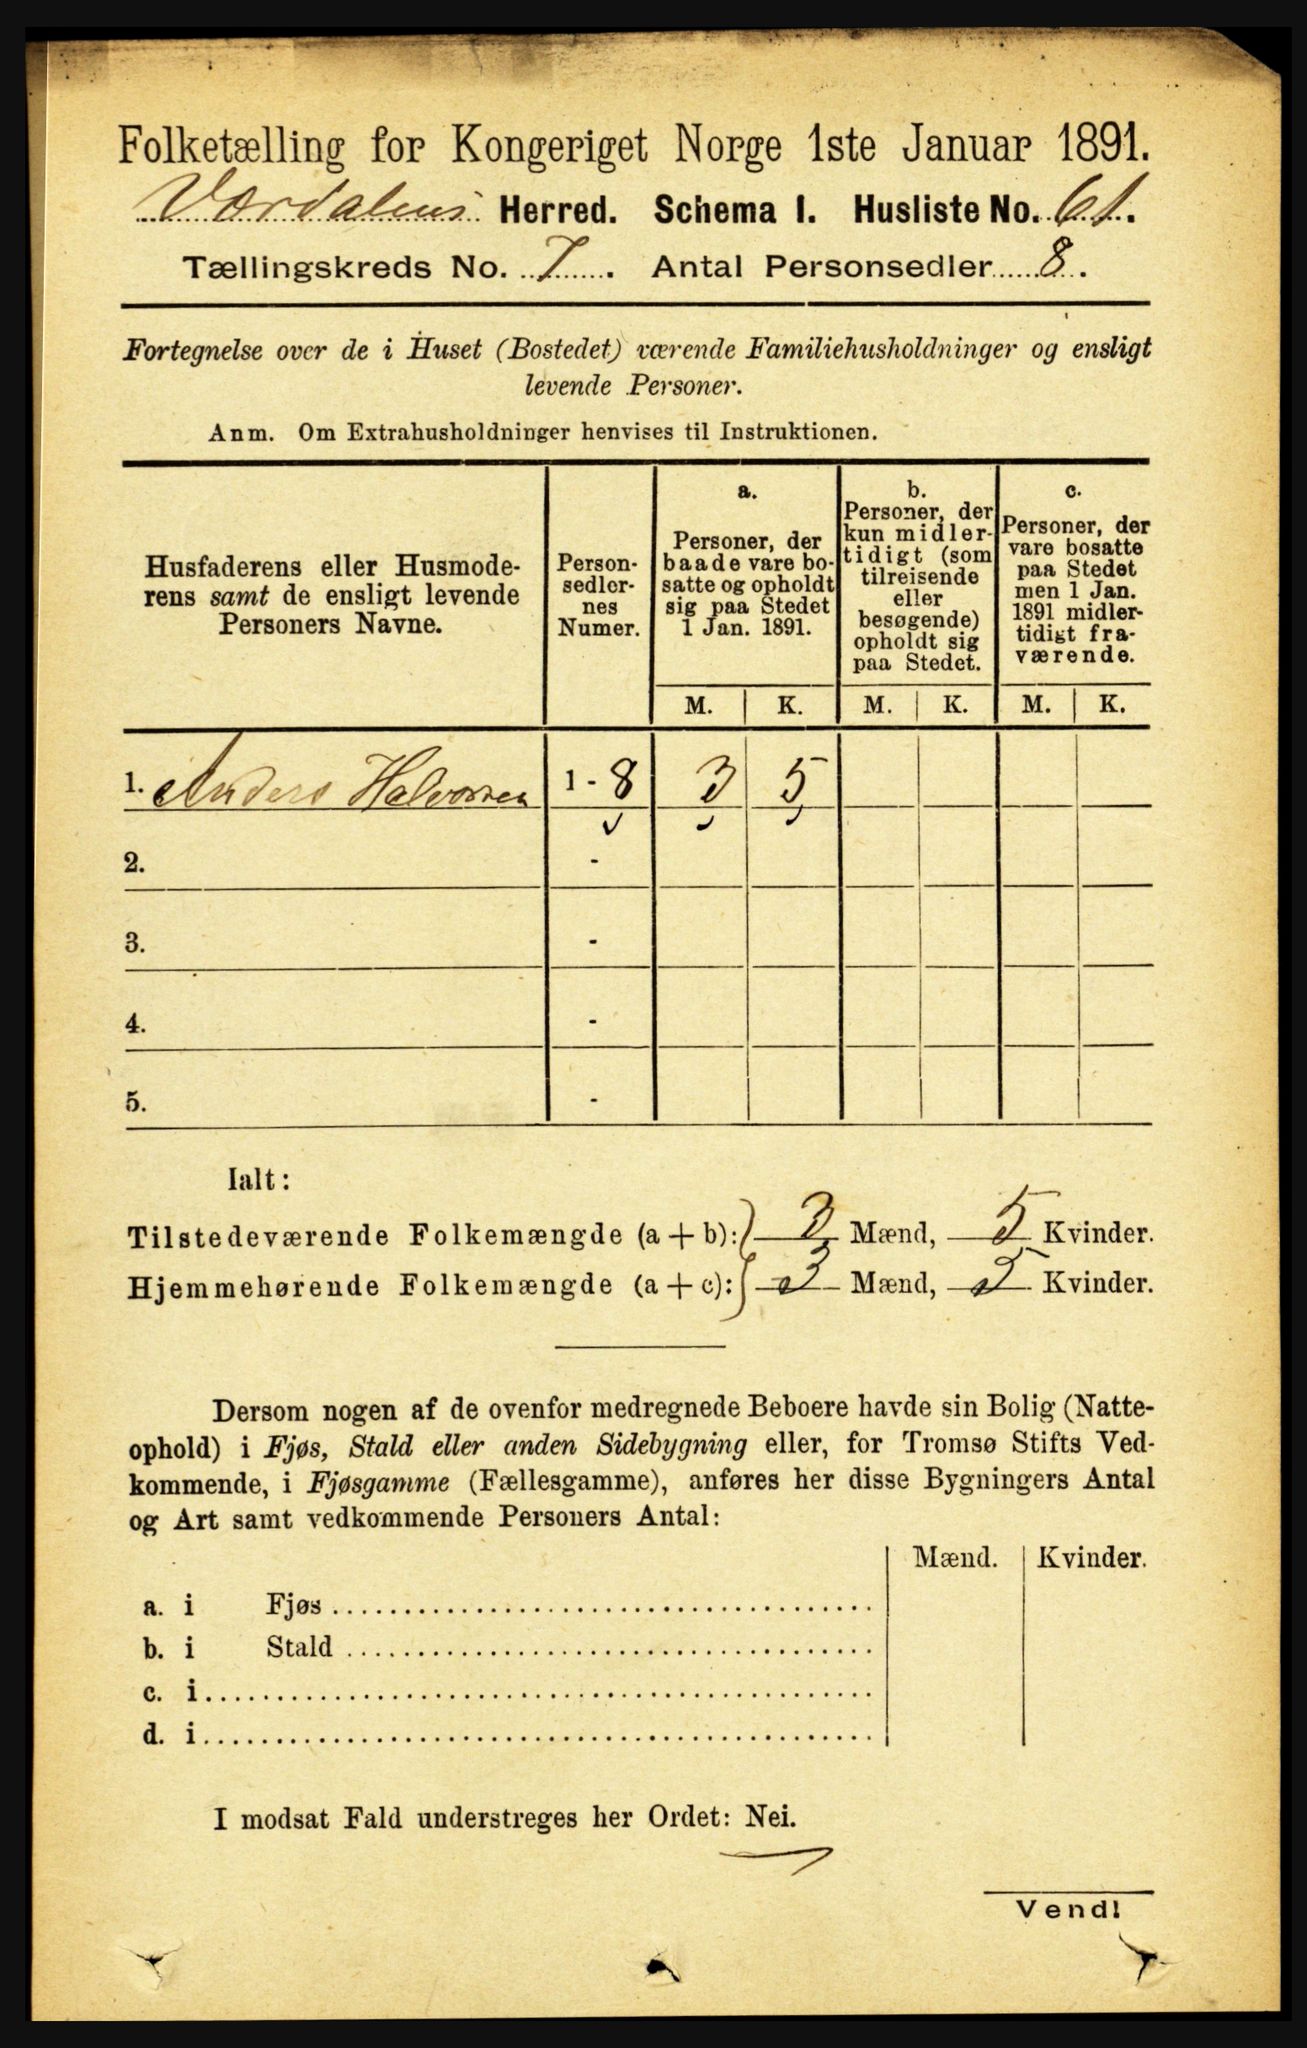 Folketælling for Kongeriget Norge 1ste Januar 1891.
Værdalens Herred. Schema I. Husliste No. 61.
Tællingskreds No. 7. Antal Personsedler 8.
Fortegnelse over de i Huset (Bostedet) værende Familiehusholdninger og ensligt
levende Personer.
Anm. Om Extrahusholdninger henvises til Instruktionen.
Husfaderens eller Husmode-
rens samt de ensligt levende
Personers Navne.
Person-
sedler-
nes
Numer.
a.
Personer, der
baade vare bo-
satte og opholdt
sig paa Stedet
1 Jan. 1891.
b.
Personer, der
kun midler-
tidigt (som
tilreisende
eller
besøgende)
opholdt sig
paa Stedet.
c.
Personer, der
vare bosatte
paa Stedet
men 1 Jan.
1891 midler-
tidigt fra-
værende.
M. K. M. K. M. K.
1. Anders Halvorsen 1 - 8 3 5
2. -
3. -
4. -
5. -
Ialt:
Tilstedeværende Folkemængde (a + b): 3 Mænd, 5 Kvinder.
Hjemmehørende Folkemængde (a + c): 3 Mænd, 5 Kvinder.
Dersom nogen af de ovenfor medregnede Beboere havde sin Bolig (Natte-
ophold) i Fjøs, Stald eller anden Sidebygning eller, for Tromsø Stifts Ved-
kommende, i Fjøsgamme (Fællesgamme), anføres her disse Bygningers Antal
og Art samt vedkommende Personers Antal:
Mænd. Kvinder.
a. i Fjøs
b. i Stald
c. i
d. i
I modsat Fald understreges her Ordet: Nei.
Vend!